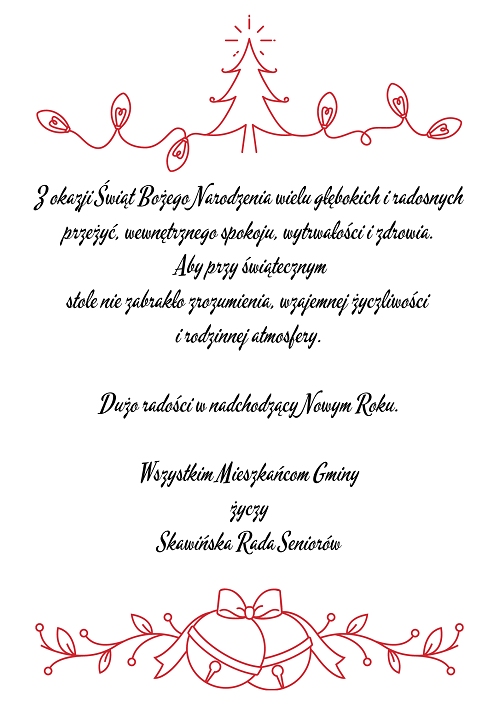 Z okazji Świąt Bożego Narodzenia wielu głębokich i radosnych
przeżyć, wewnętrznego spokoju, wytrwałości i zdrowia.
Aby przy świątecznym
stole nie zabrakło zrozumienia, wzajemnej życzliwości
i rodzinnej atmosfery.
Dużo radości w nadchodzący Nowym Roku.
Wszystkim Mieszkańcom Gminy
życzy
Skawińska Rada Seniorów